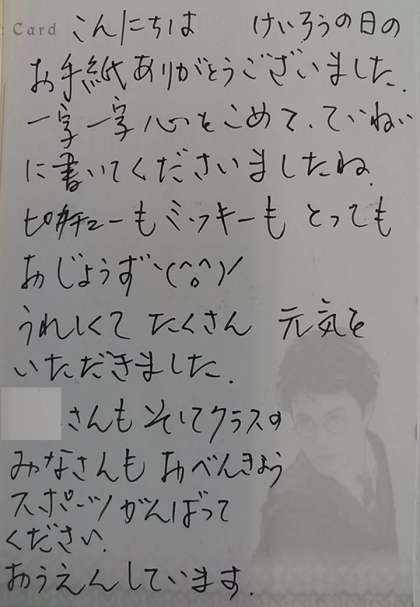 Card こんにちは けいろうの日の
お手紙ありがとうございました.
一字一字心をこめて、ていねい
に書いてくださいましたね.
ピカチューもミッキーもとっても
おじょうず ヽ(^o^)ノ
うれしくて たくさん 元気を
いただきました.
さんも そしてクラスの
みなさんも おべんきょう
スポーツがんばって
ください.
おうえんしています.